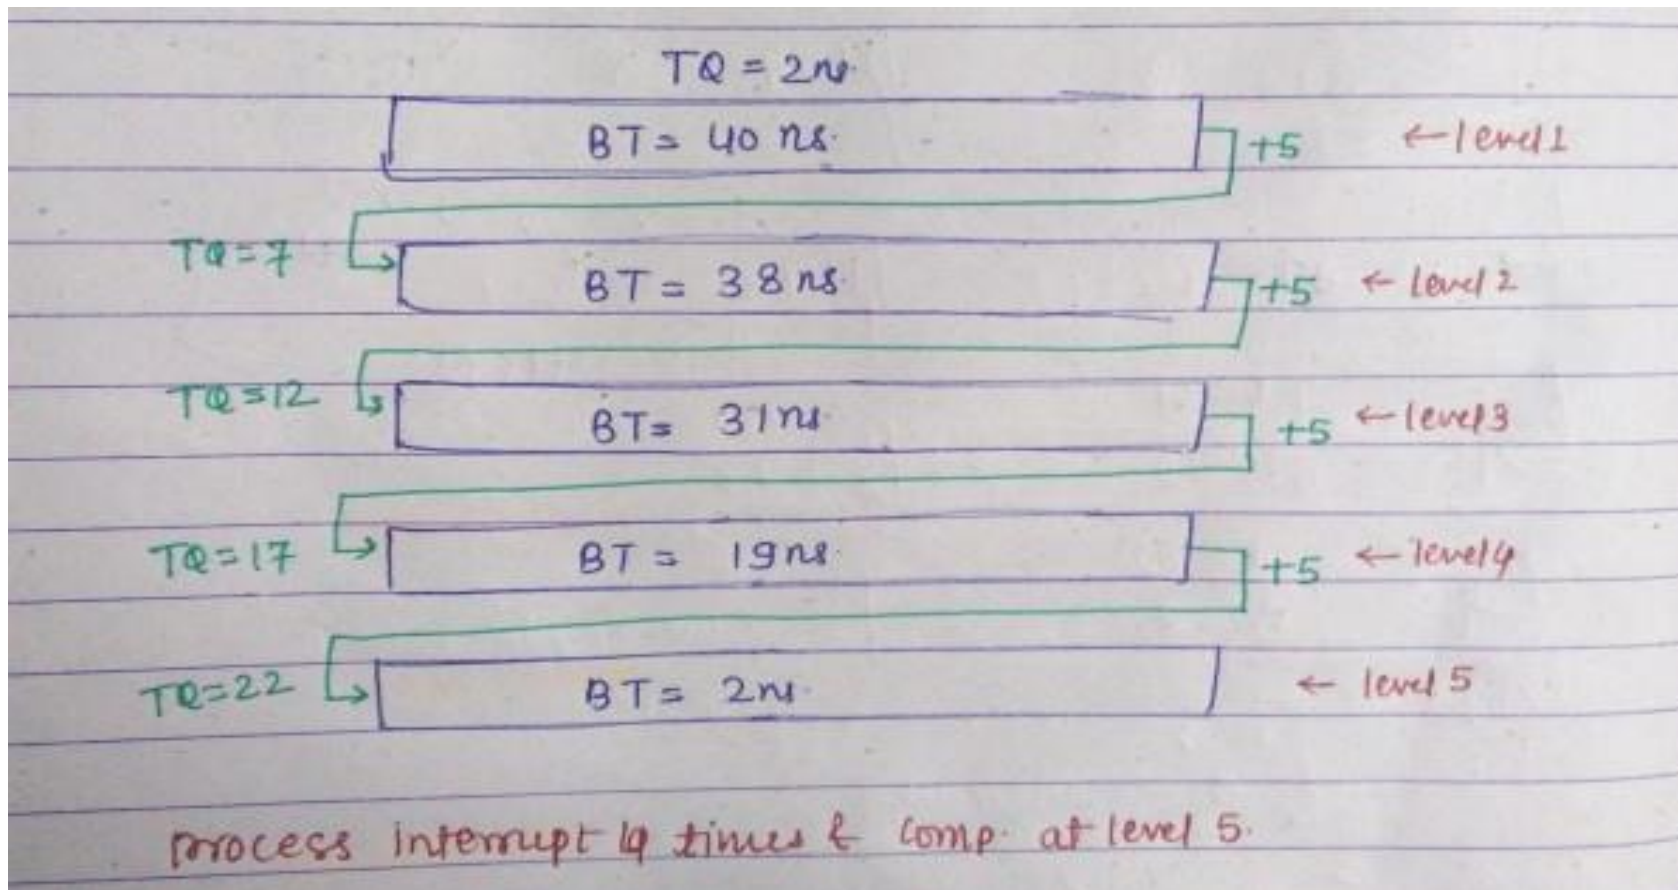 TQ = 2ns
BT = 40 ns. +5 ← level 1
TQ = 7 BT = 38 ns. +5 ← level 2
TQ = 12 BT = 31 ns. +5 ← level 3
TQ = 17 BT = 19 ns. +5 ← level 4
TQ = 22 BT = 2 ns. ← level 5
process interrupt 4 times & comp. at level 5.